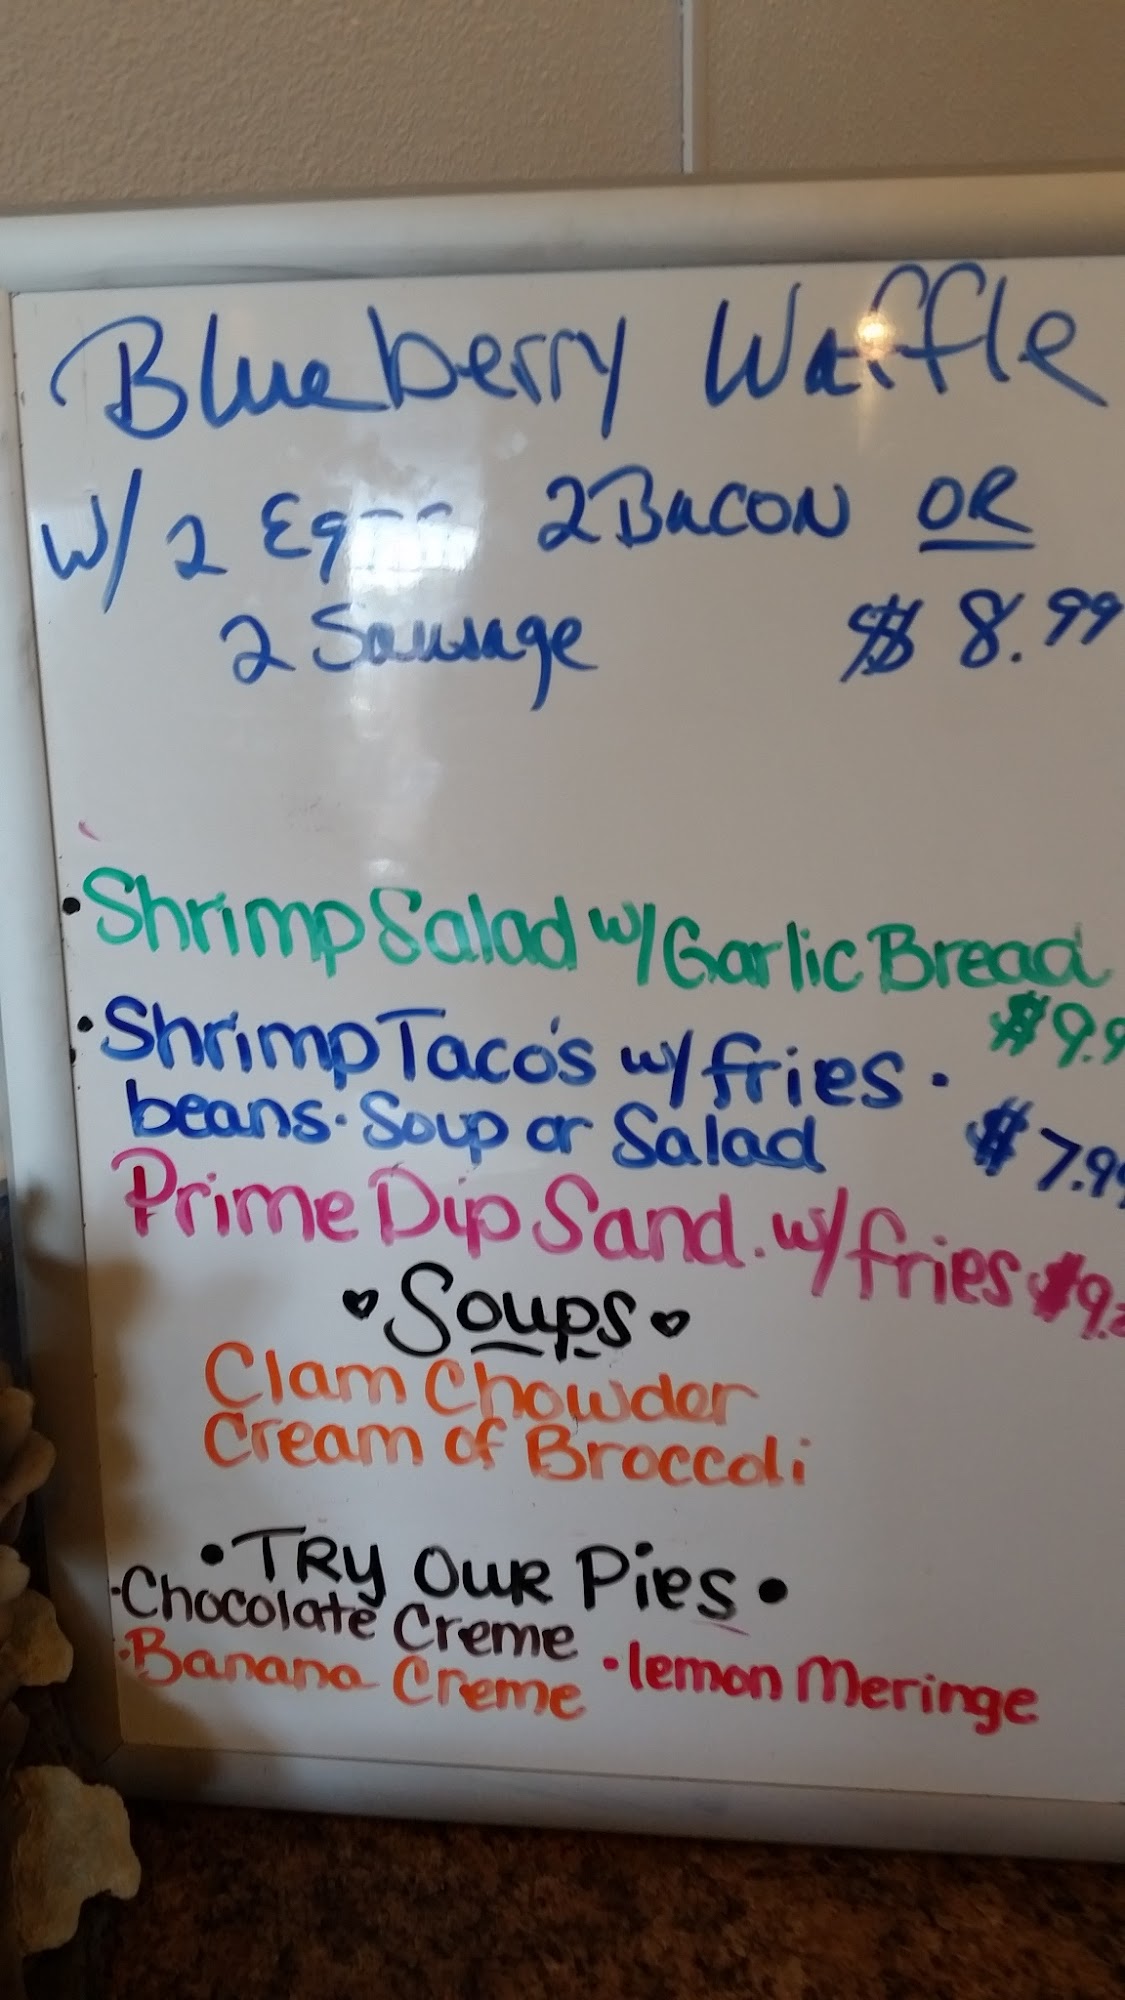 Blueberry Waffle
W/ 2 Eggs 2 Bacon OR
2 Sausage $ 8.99
• Shrimp Salad w/ Garlic Bread
$9.9
• Shrimp Taco's w/ fries •
beans • Soup or Salad $7.99
Prime Dip Sand. w/ fries $9.
♥ Soups ♥
Clam Chowder
Cream of Broccoli
• TRY OUR Pies •
• Chocolate Creme
• Banana Creme • lemon Meringe